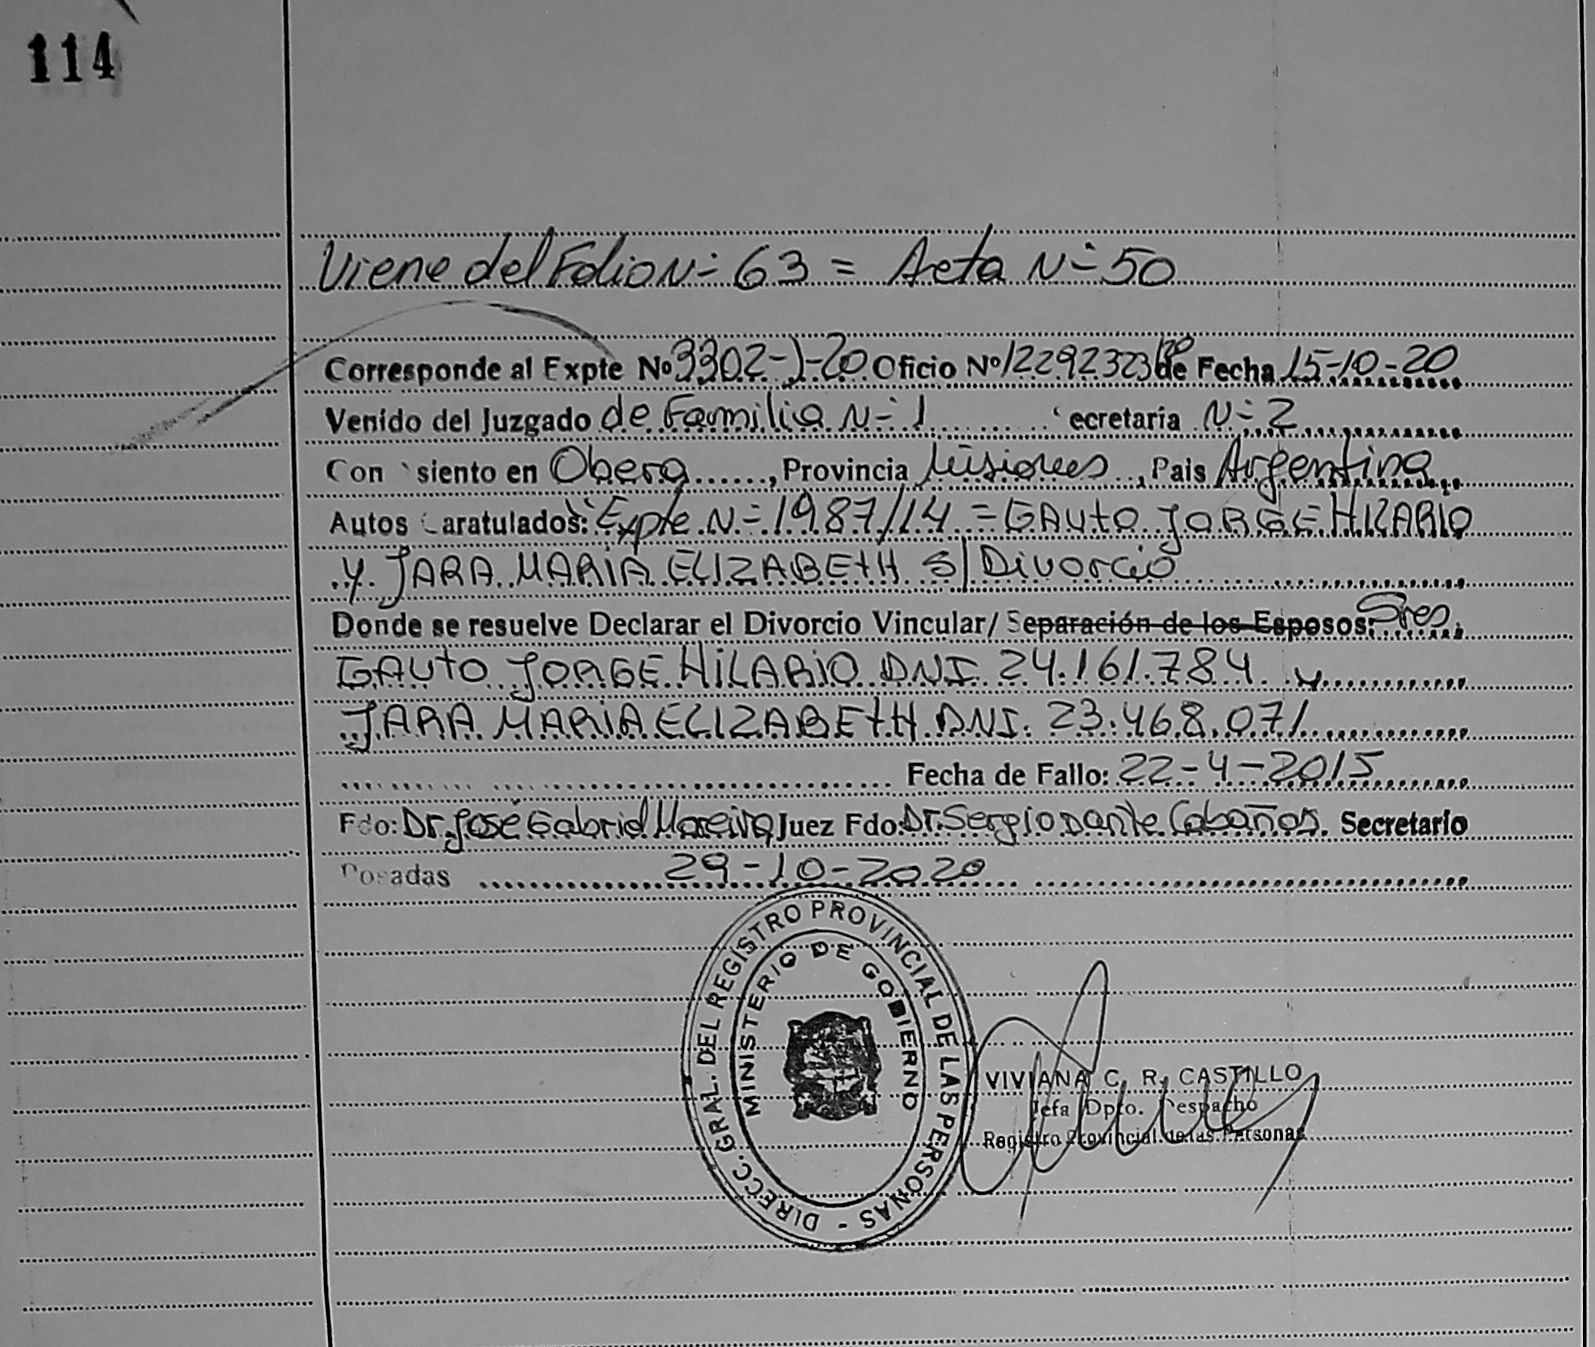 114
Viene del Folio Nº 63 = Acta Nº 50
Corresponde al Expte Nº 3302-J-20 Oficio Nº 12292323/20 de Fecha 15-10-20
Venido del Juzgado de Familia Nº 1 ecretaria Nº 2
Con siento en Obera, Provincia Misiones, Pais Argentina
Autos aratulados: "Expte Nº 1987/14 = GAUTO JORGE HILARIO
y JARA MARIA ELIZABETH S/ Divorcio
Donde se resuelve Declarar el Divorcio Vincular/ Separación de los Esposos: Sres.
GAUTO JORGE HILARIO DNI 24.161.784 y
JARA MARIA ELIZABETH DNI. 23.468.071
Fecha de Fallo: 22-4-2015
Fdo: Dr. José Gabriel Moreira Juez Fdo: Dr. Sergio Dante Cabañas. Secretario
Posadas 29-10-2020
DIRECC. GRAL. DEL REGISTRO PROVINCIAL DE LAS PERSONAS -
MINISTERIO DE GOBIERNO
VIVIANA C. R. CASTILLO
Jefa Dpto. Despacho
Registro Provincial de las Personas